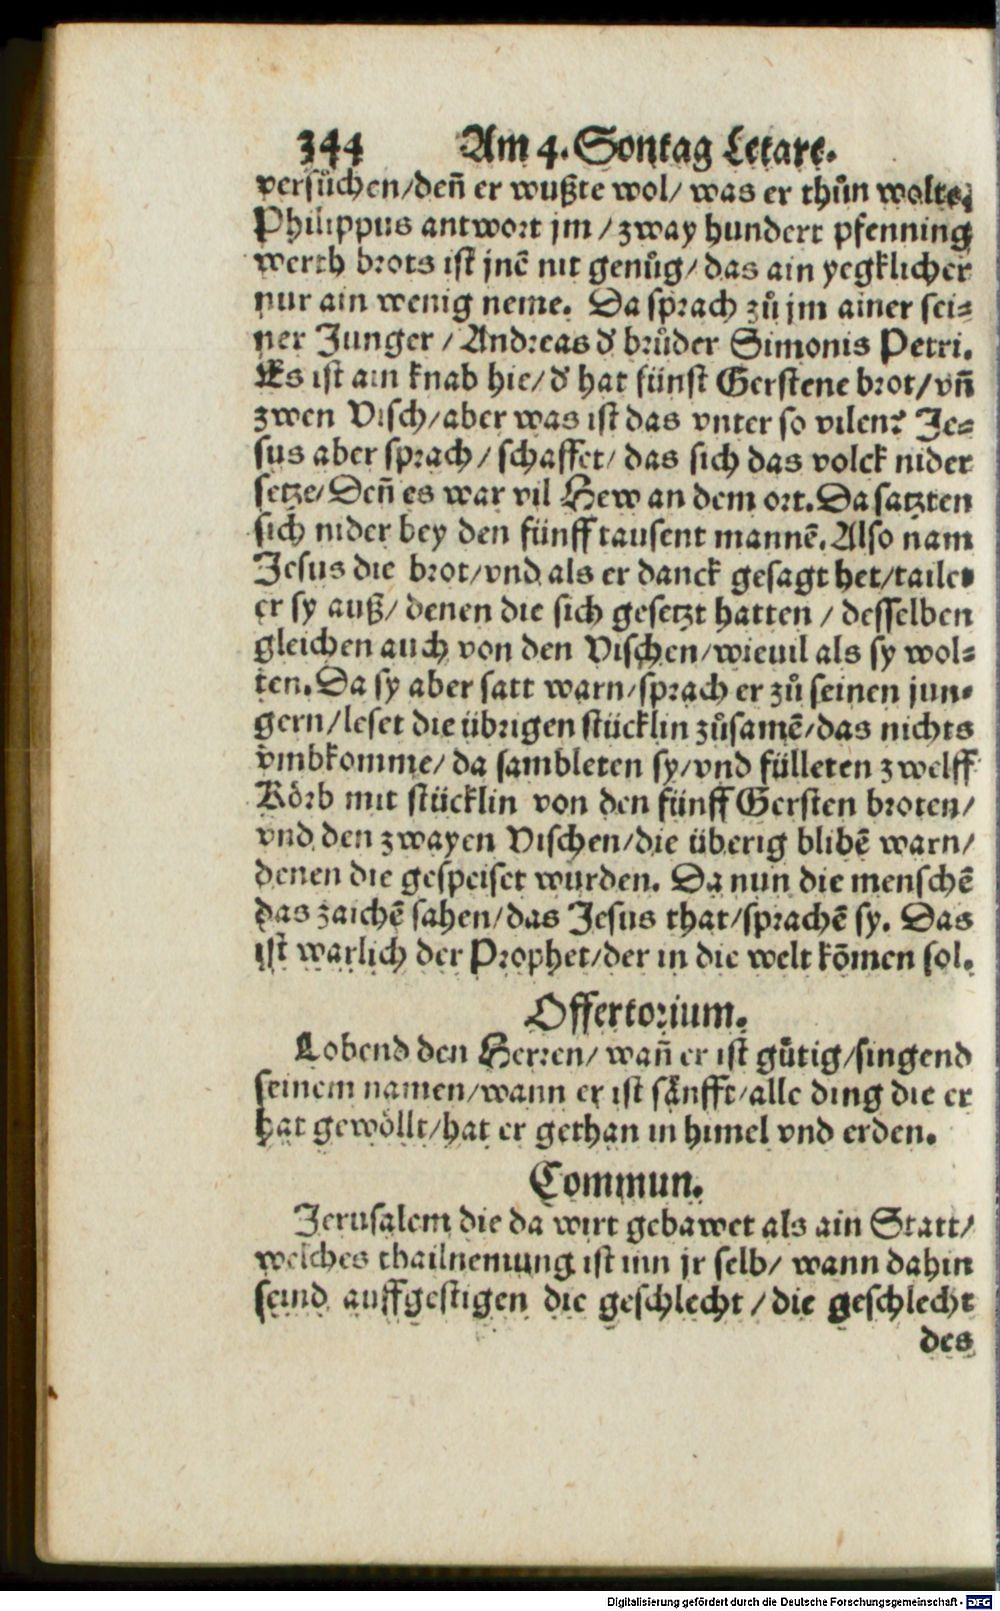 344 Am 4. Sontag Letare.
versůchen/deñ er wußte wol/ was er thůn wolte.
Philippus antwort jm/zway hundert pfenning
werth brots ist jnē nit genůg/das ain yegklicher
nur ain wenig neme. Da sprach zů jm ainer sei-
ner Junger/Andreas d' brůder Simonis Petri.
Es ist ain knab hie/d' hat fünff Gerstene brot/vñ
zwen Visch/aber was ist das vnter so vilen? Je-
sus aber sprach/schaffet/das sich das volck nider
setze/Deñ es war vil Hew an dem ort. Da satzten
sich nider bey den fünff tausent mannē. Also nam
Jesus die brot/vnd als er danck gesagt het/tailet
er sy auß/denen die sich gesetzt hatten/desselben
gleichen auch von den Vischen/wieuil als sy wol-
ten. Da sy aber satt warn/sprach er zů seinen jun-
gern/leset die übrigen stücklin zůsamē/das nichts
vmbkomme/da sambleten sy/vnd fülleten zwelff
Körb mit stücklin von den fünff Gersten broten/
vnd den zwayen Vischen/die überig blibē warn/
denen die gespeiset wurden. Da nun die menschē
das zaichē sahen/das Jesus that/sprachē sy. Das
ist warlich der Prophet/der in die welt kōmen sol.
Offertorium.
Lobend den Herren/wañ er ist gůtig/singend
seinem namen/wann er ist sänfft/alle ding die er
hat gewöllt/hat er gethan in himel vnd erden.
Commun.
Jerusalem die da wirt gebawet als ain Statt/
welches thailnemung ist inn jr selb/wann dahin
seind auffgestigen die geschlecht/die geschlecht
des
Digitalisierung gefördert durch die Deutsche Forschungsgemeinschaft - DFG